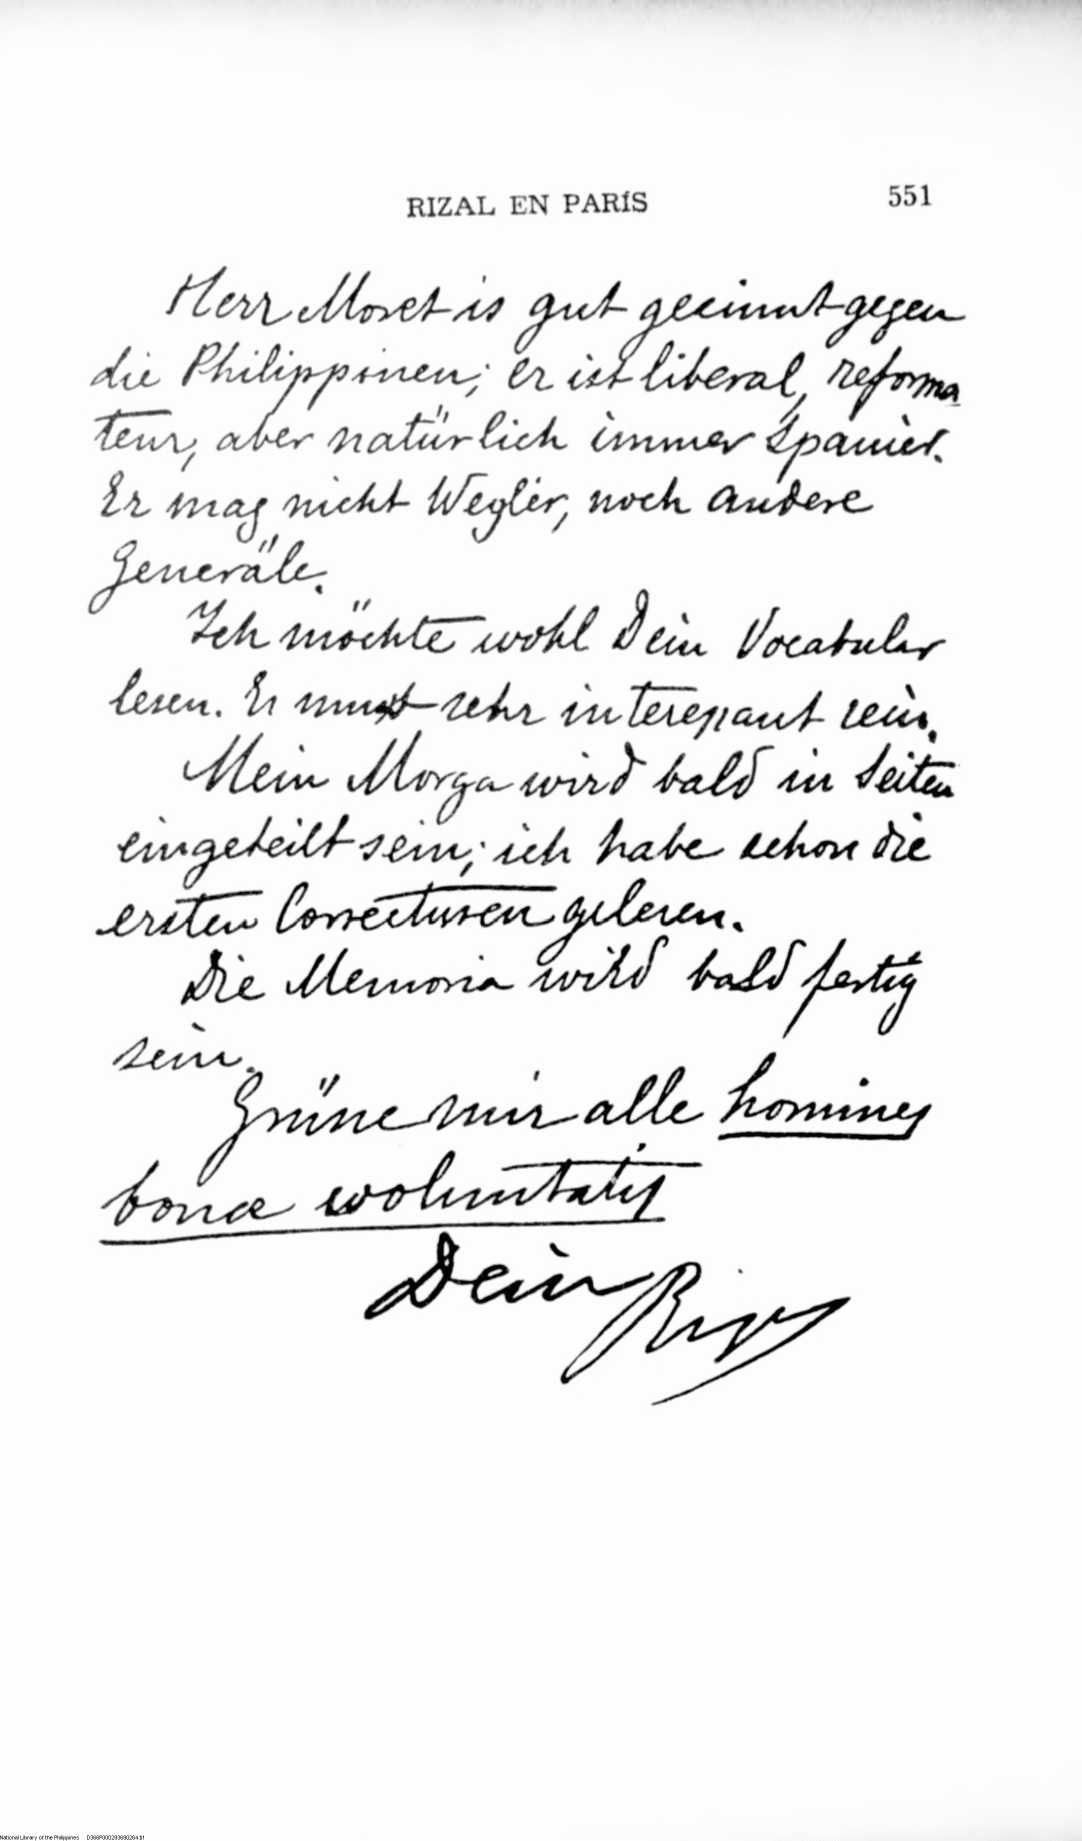 RIZAL EN PARÍS 551
Herr Moret is gut gesinnt gegen
die Philippinen; er ist liberal, reforma
teur, aber natürlich immer Spanier.
Er mag nicht Weyler, noch andere
Generäle.
Ich möchte wohl Dein Vocabular
lesen. Er must sehr interessant sein.
Mein Morga wird bald in Seiten
eingeteilt sein; ich habe schon die
ersten Correcturen gelesen.
Die Memoria wird bald fertig
sein.
Grüsse mir alle homines
bonae woluntatis
Dein Rizal
National Library of the Philippines